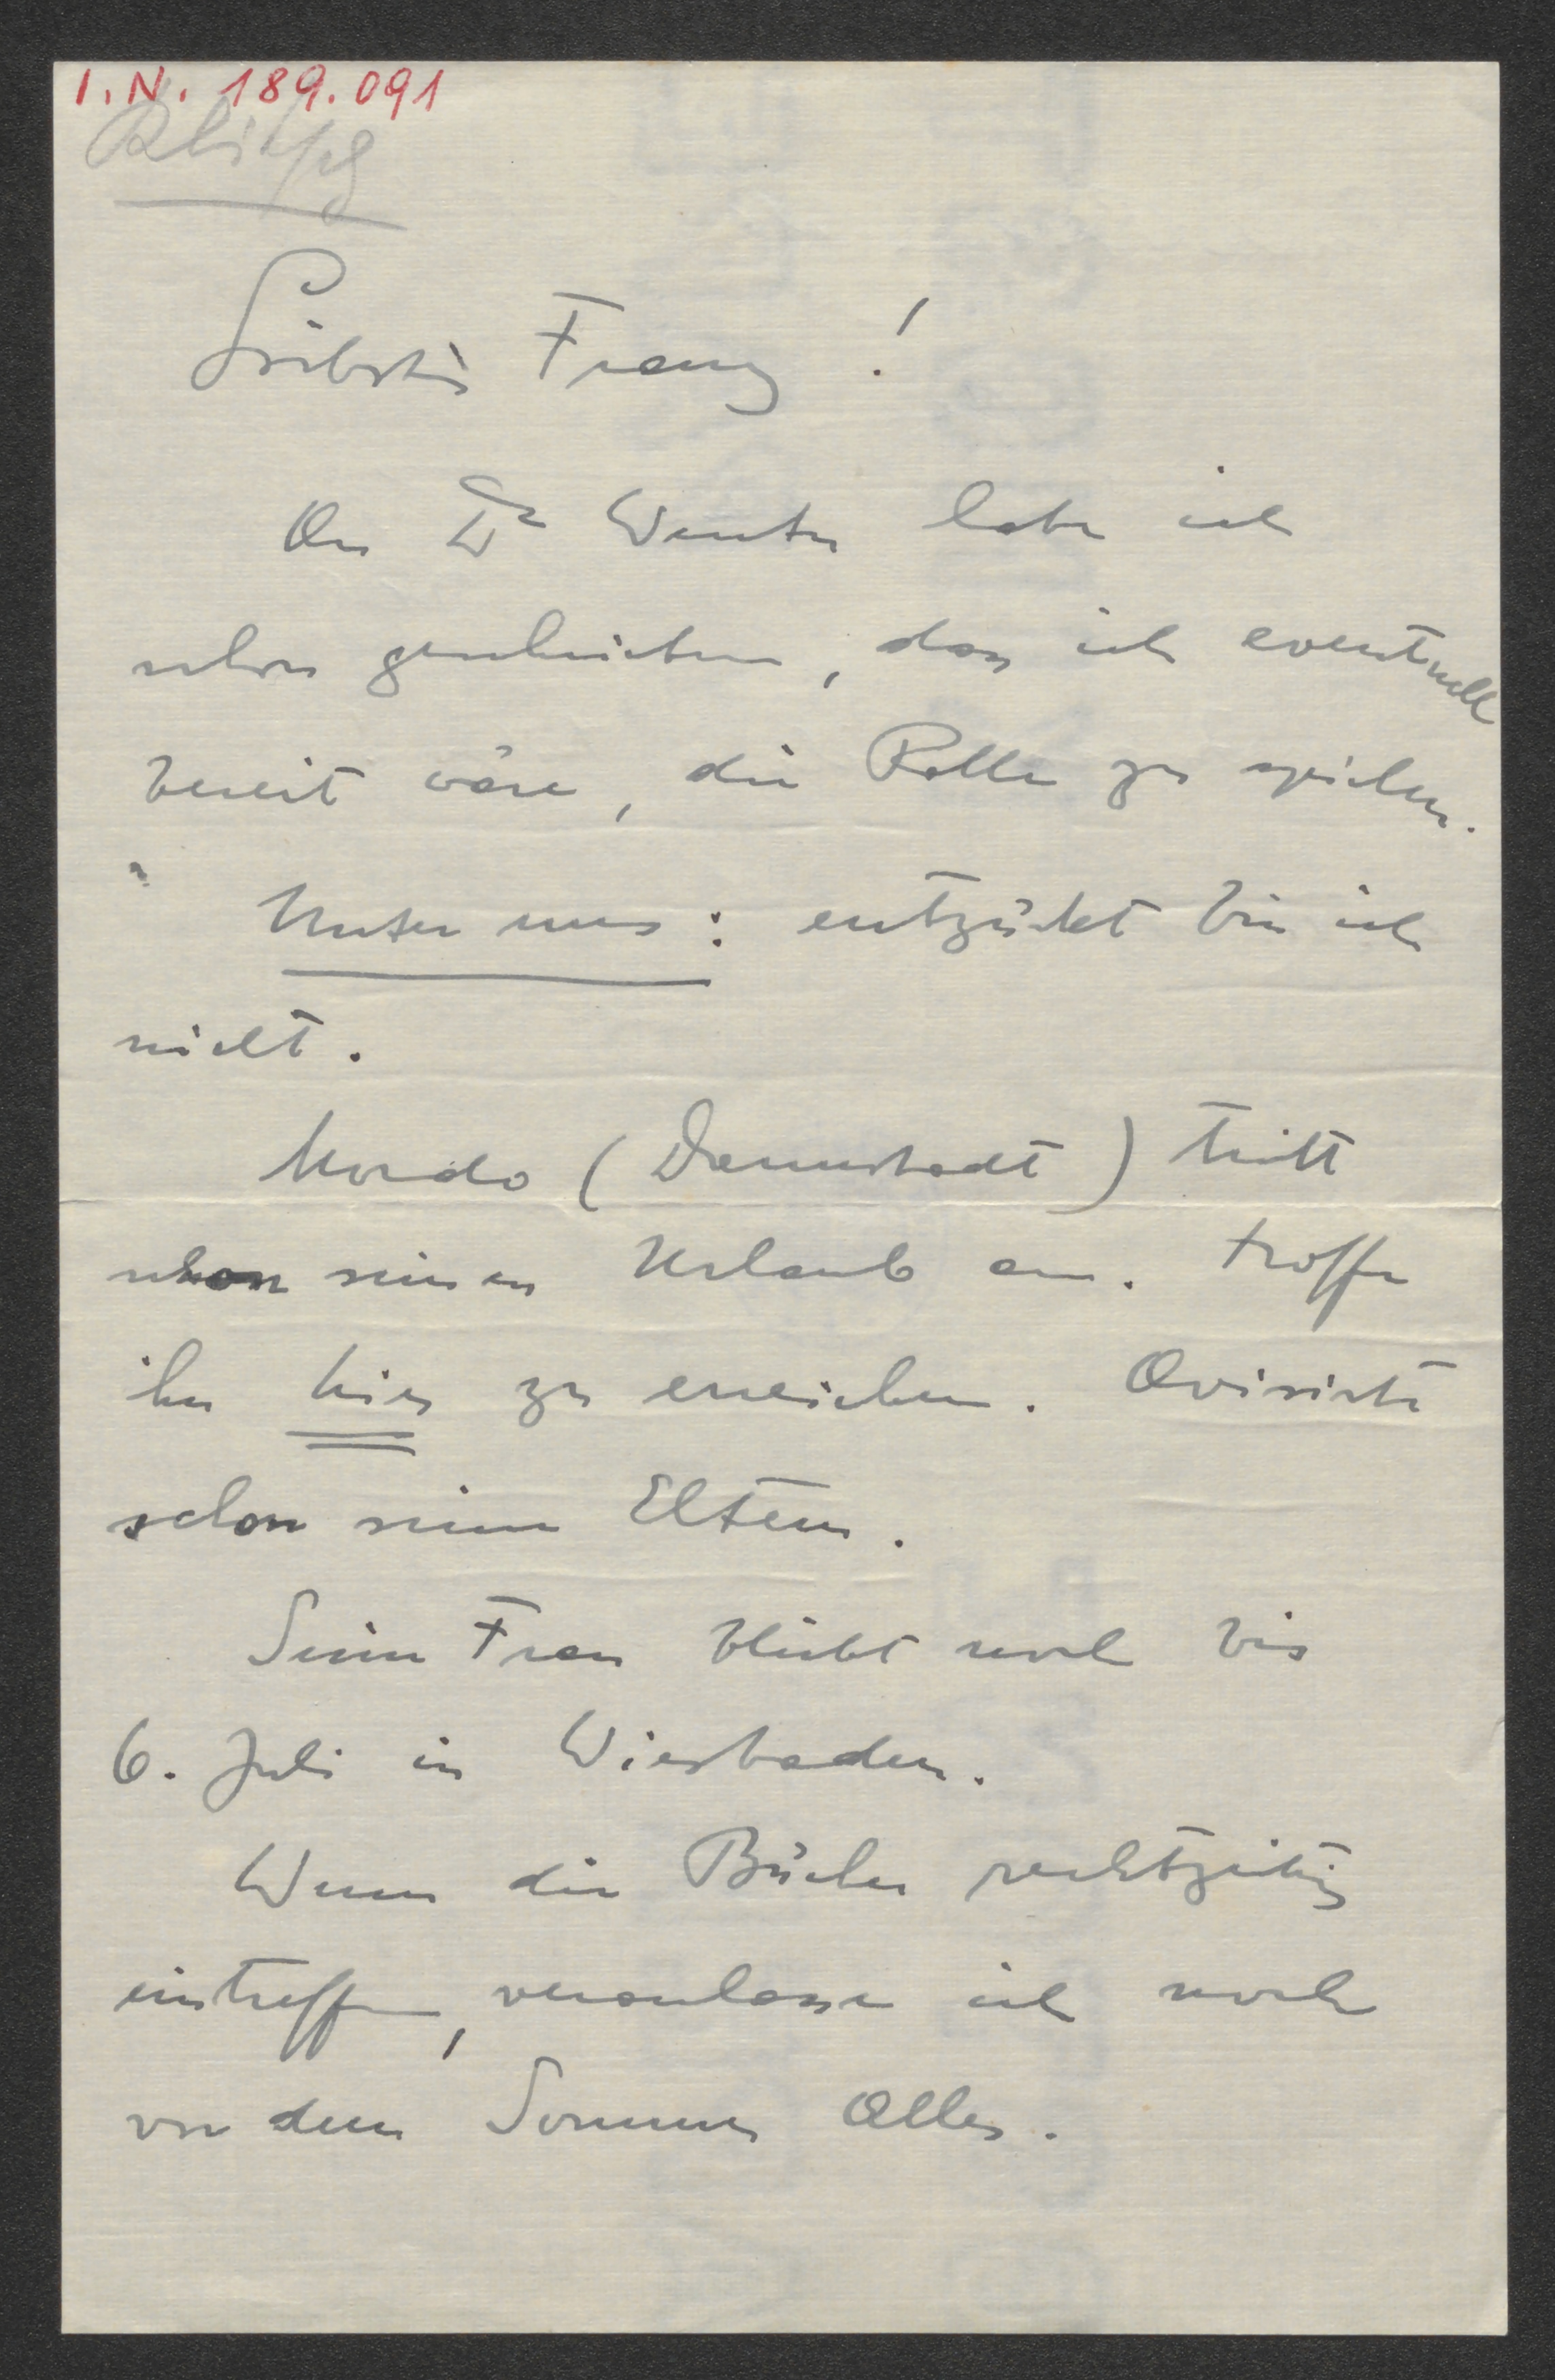 I.N. 189.091
Liebster Franz!
An Dr Winter habe ich
schon geschrieben, dass ich eventuell
bereit wäre, die Rolle zu spielen.
Unter uns: entzückt bin ich
nicht.
Mordo (Darmstadt) tritt
schon seinen Urlaub an. Hoffe
ihn hier zu erreichen. Avisierte
schon seine Eltern.
Seine Frau bleibt noch bis
6. Juli in Wiesbaden.
Wenn die Bücher rechtzeitig
eintreffen, veranlasse ich noch
vor dem Sommer Alles.